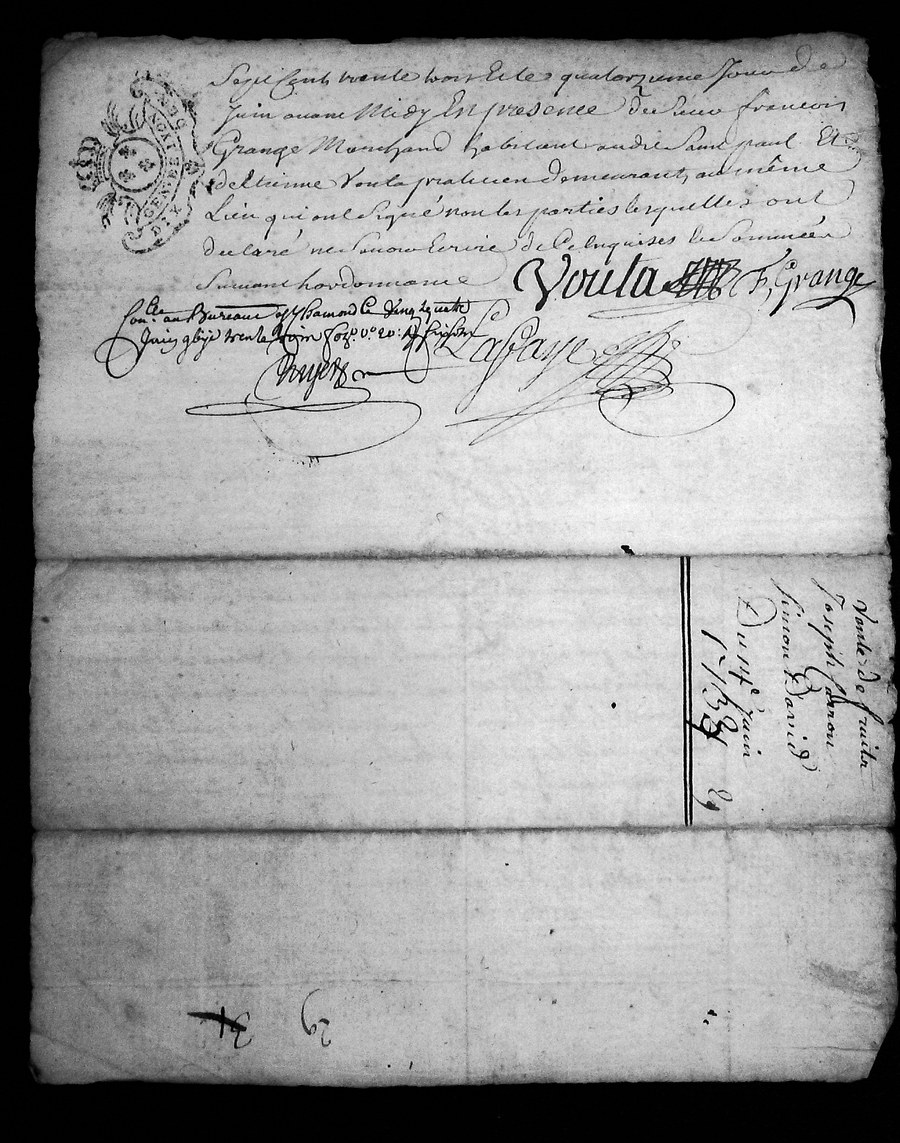 Sept Cent trente trois Et le quatorzieme Jour de
Juin avant Midy En presence de Sieur francois
Grange Marchand habitant audit Saint paul Et
de Etienne Vouta praticien demeurant au même
Lieu qui ont signé non les parties lesquelles ont
declaré ne scavoir Ecrire de Ce Enquises
Suivant hordonnance Vouta F, Grange
au Bureau de St Chamond Ce
Juin trente trois
Lafaye
GEN DE LYON
DIX DEN
Vente de fruits
Joseph
Simon David
Du 14e Juin
1733
29
29
31